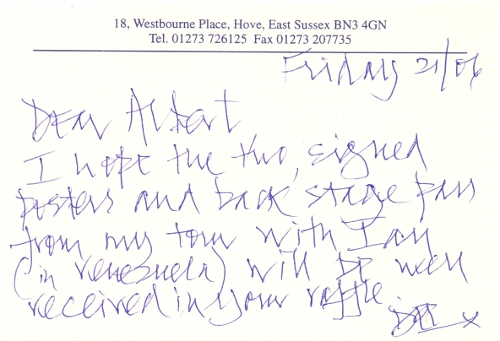 18, Westbourne Place, Hove, East Sussex BN3 4GN
Tel. 01273 726125 Fax 01273 207735
Friday 21/06
Dear Albert
I hope the two, signed
posters and back stage pass
from my tour with Ian
(in Venesuela) will be well
received in your raffle.
x